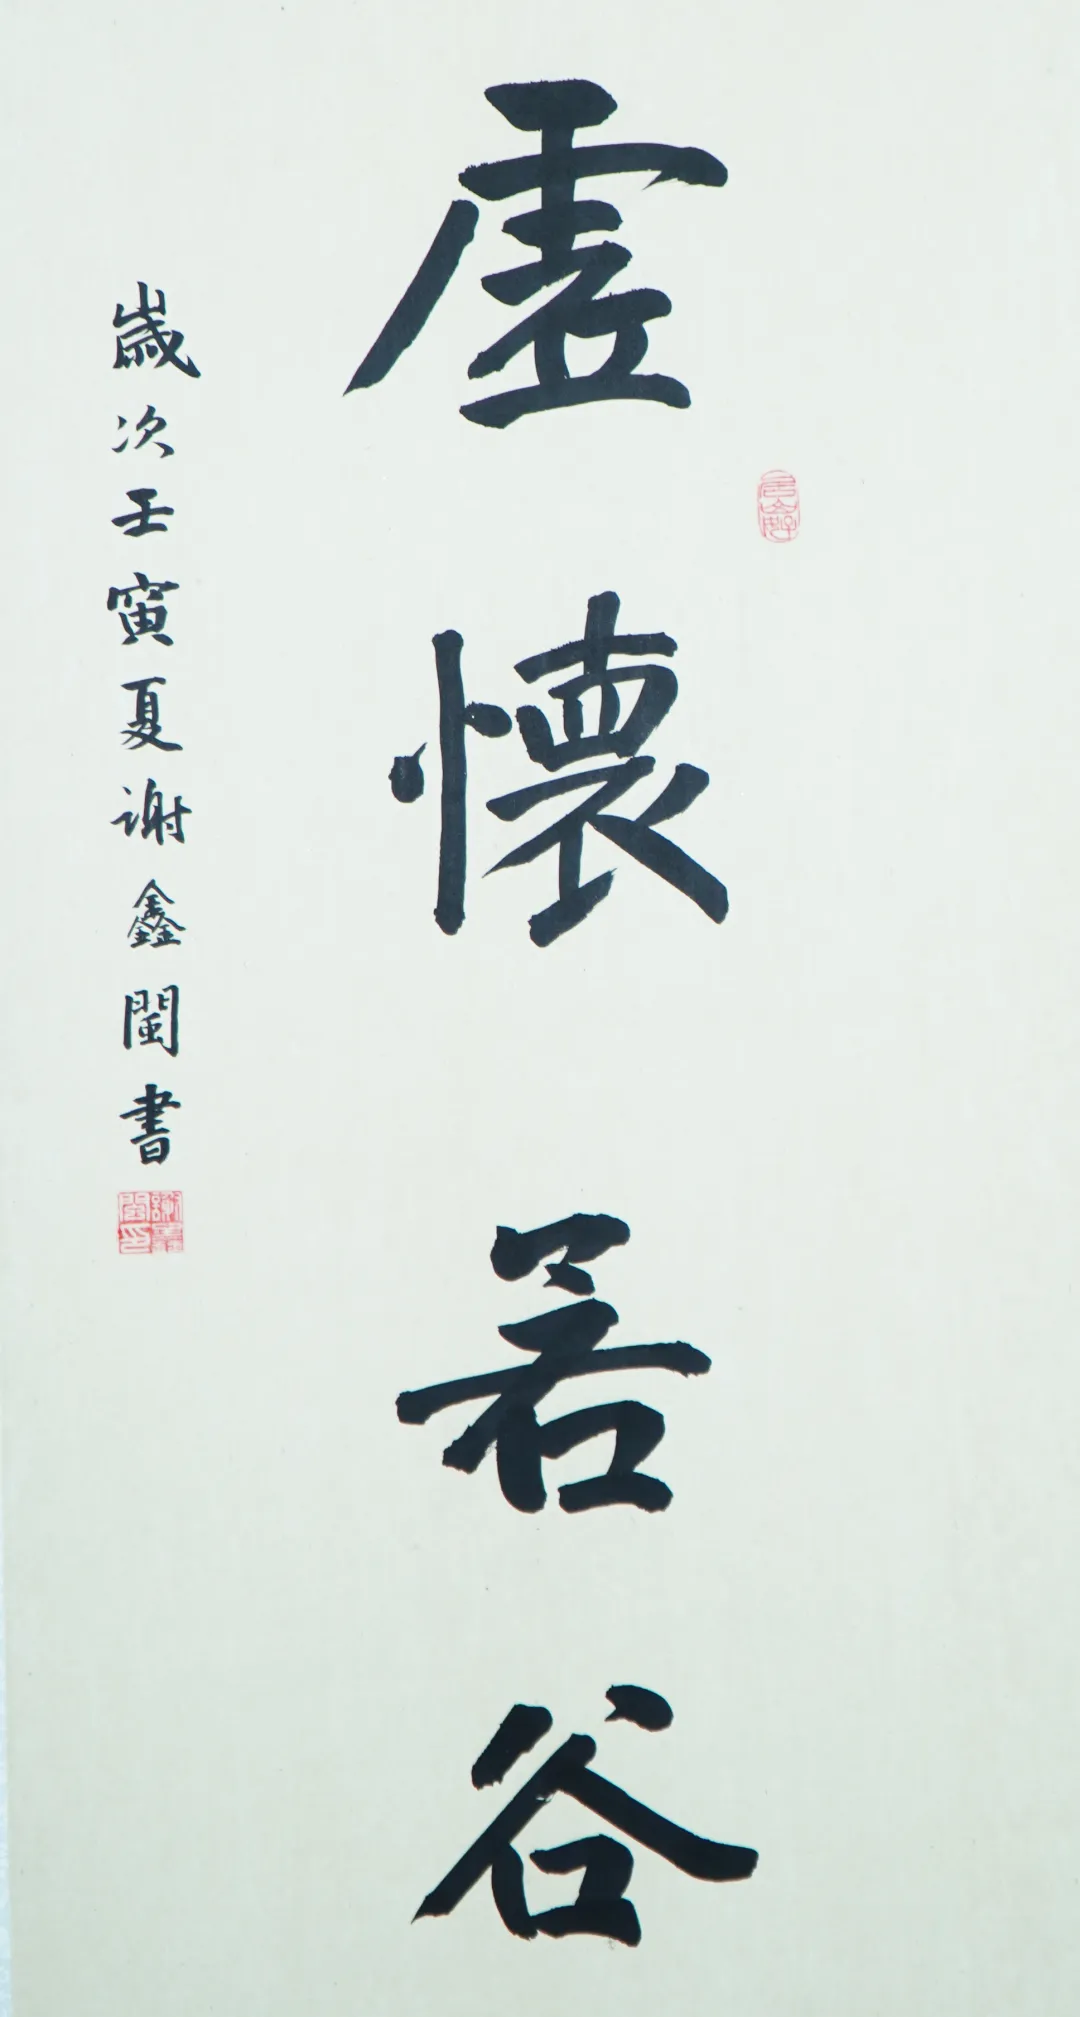 虛懷若谷
歲次壬寅夏谢鑫閩書